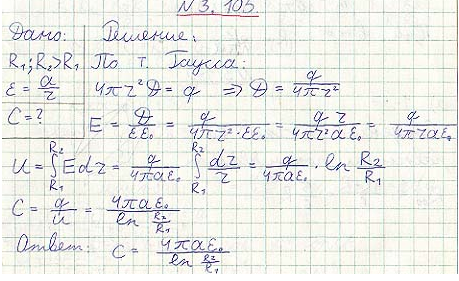 N 3. 105.
Дано: Решение:
R₁; R₂>R₁ По т. Гаусса:
ε = a/r 4πr² D = q => D = q/4πr²
C = ? E = D/εε₀ = q/4πr²·εε₀ = q r/4πr²aε₀ = q/4πraε₀
U = ∫_{R₁}^{R₂} Edr = q/4πaε₀ ∫_{R₁}^{R₂} dr/r = q/4πaε₀ · ln R₂/R₁
C = q/u = 4πaε₀/ln R₂/R₁
Ответ: C = 4πaε₀/ln R₂/R₁